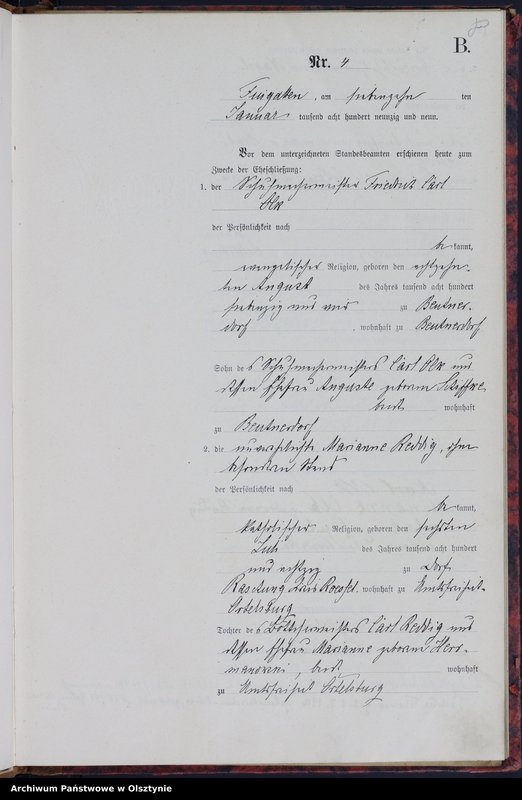 B.
Nr. 4
am siebenzehn ten
Januar tausend acht hundert neunzig und neun.
Vor dem unterzeichneten Standesbeamten erschienen heute zum
Zwecke der Eheschließung:
1. der Schuhmachermeister Friedrich Carl
Olk
der Persönlichkeit nach
be kannt,
evangelischer Religion, geboren den achtzehn-
ten August des Jahres tausend acht hundert
siebenzig und vier zu Beutner-
dorf, wohnhaft zu Beutnerdorf
Sohn des Schuhmachermeisters Carl Olk und
dessen Ehefrau Auguste geborene
beide wohnhaft
zu Beutnerdorf
2. die unverehelichte Marianne Reddig, ohne
besonderen Stand
der Persönlichkeit nach
be kannt,
katholischer Religion, geboren den sechsten
Juli des Jahres tausend acht hundert
und achtzig zu Dorf
Raschung Kreis Roessel, wohnhaft zu Amtsfreiheit-
Ortelsburg
Tochter des Böttchermeisters Carl Reddig und
dessen Ehefrau Marianne geborene Herr-
manowski, beide wohnhaft
zu Amtsfreiheit Ortelsburg
Archiwum Państwowe w Olsztynie